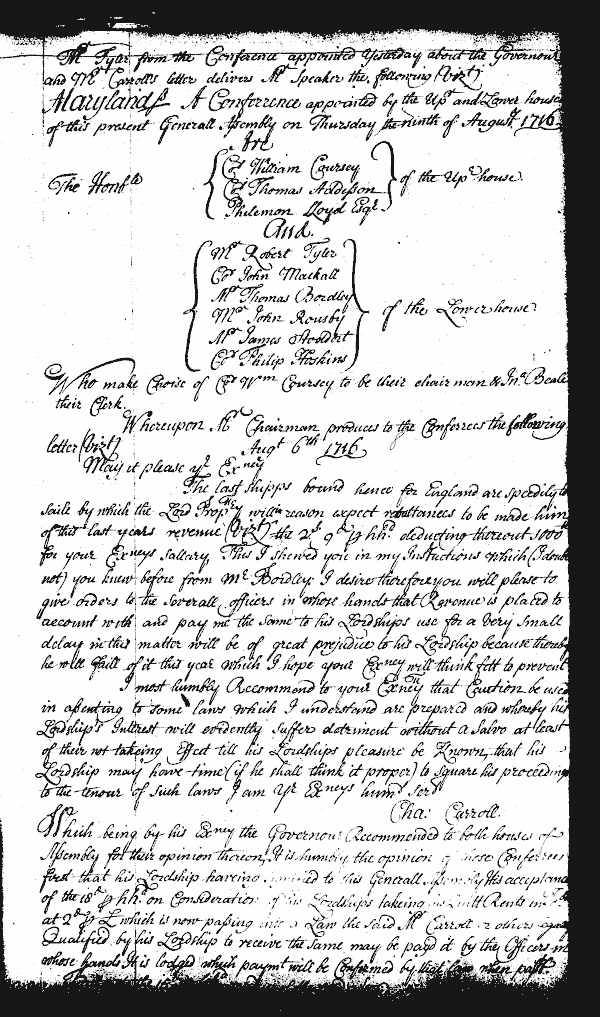 Mr Tyler from the Conference appointed Yesterday about the Governour
and Mr Carrolls letter delivers Mr Speaker the following (Vizt)
Maryland ss A Conference appointed by the Upr and Lower house
of this present Generall Assembly on Thursday the ninth of August 1716
Are
The Honble
Col William Coursey
Col Thomas Addison
Philemon Lloyd Esqr
of the Upr house
And
Mr Robert Tyler
Col John Mackall
Mr Thomas Bordley
Mr John Rousby
Mr James Stoddert
Col Philip Hoskins
of the Lower house
Who make Choise of Col Wm Coursey to be their chair man & Jno Beale
their Clerk.
Whereupon Mr Chairman produces to the Conferrees the following
letter (Vizt)
Augt 6th 1716
May it please yr Exncy
The last shipps bound hence for England are speedily to
saile by which the Lord Propry will wth reason expect remittances to be made him
of this last years revenue (Vizt) the 2s 9d p hhd deducting thereout 1000
for your Exncys sallary This I shewed you in my Instructions which (I doubt
not) you knew before from Mr Bordley I desire therefore you will please to
give orders to the severall officers in whose hands that Revenue is placed to
account with and pay me the same to his Lordships use for a very small
delay in this matter will be of great prejudice to his Lordship because thereby
he will faill of it this year which I hope your Exncy will think fitt to prevent
I most humbly Recommend to your Exncy that Caution be used
in assenting to some laws which I understand are prepared and whereby his
Lordship's Interest will evidently suffer detriment without a Salvo at least
of their not takeing Effect till his Lordships pleasure be Known, that his
Lordship may have time (if he shall think it proper) to square his proceedings
to the tenour of such laws I am Yr Exncys humb Servt
Cha: Carroll.
Which being by his Exncy the Governour Recommended to both houses of
Assembly for their opinion thereon, It is humbly the opinion of these Conferrees
first that his Lordship haveing to this Generall Assembly His acceptance
of the 18d p hhd on Consideration of his Lordships takeing his Quitt Rents in
at 2d p l which is now passing into a Law the said Mr Carroll or others
Qualified by his Lordship to receive the same may be paid it by the Officers in
whose hands It is lodged which paymt will be Confirmed by that law when past.